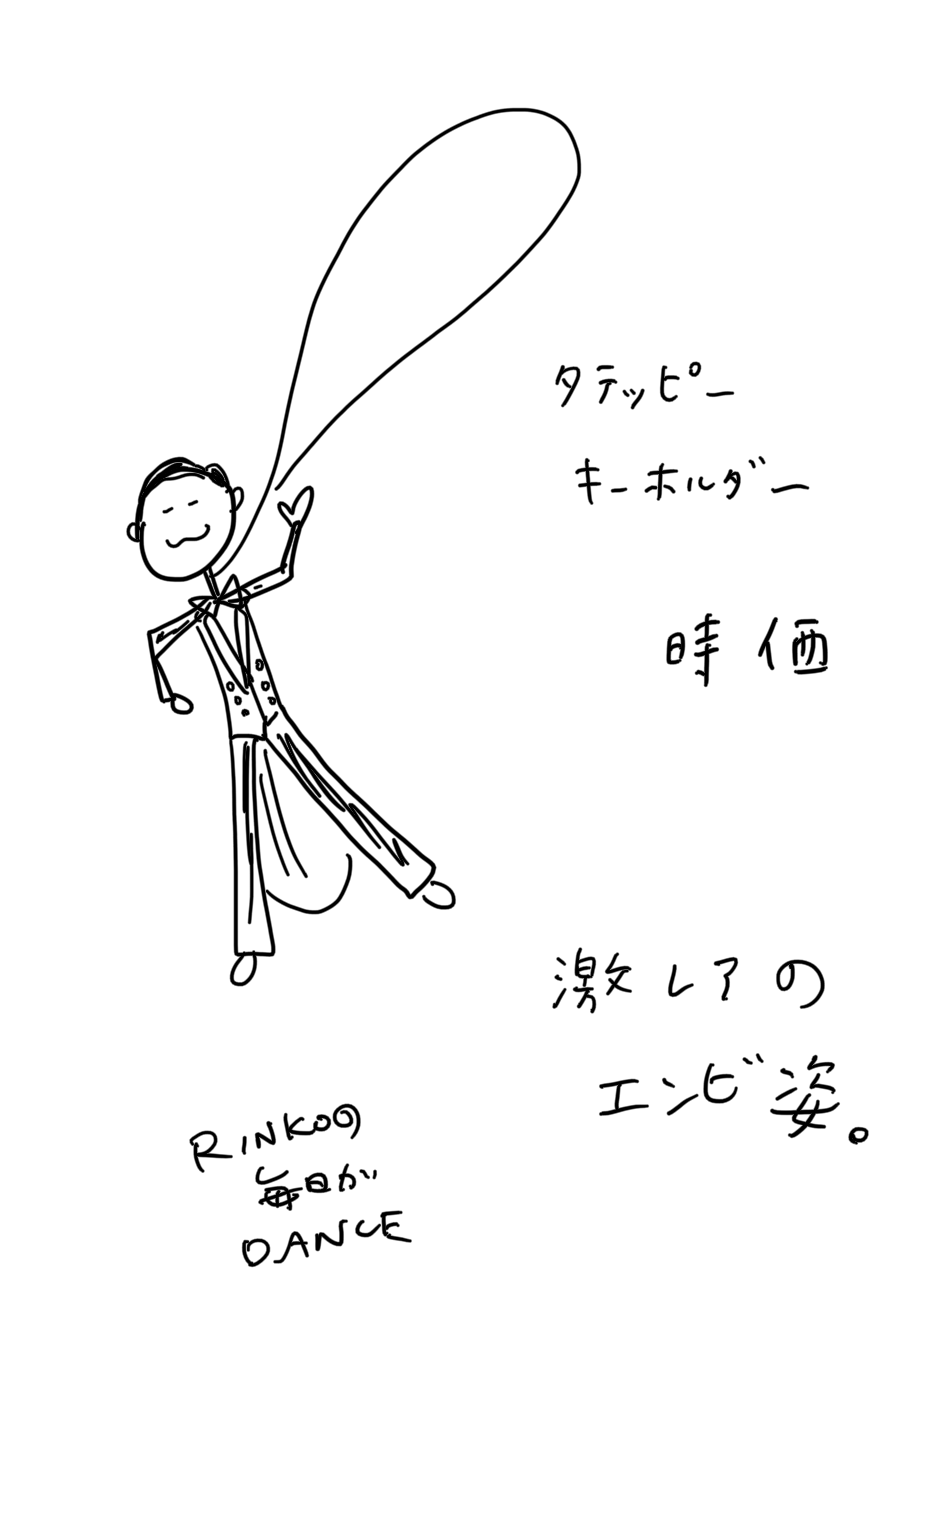 タテッピー
キーホルダー
時価
激レアの
エンビ姿。
RINKOの
毎日が
DANCE